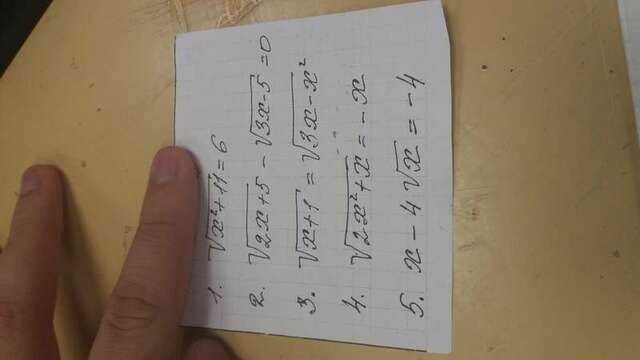 1. √(x²+11) = 6
2. √(2x+5) - √(3x-5) = 0
3. √(x+1) = √(3x-x²)
4. √(2x²+x) = -x
5. x - 4√x = -4